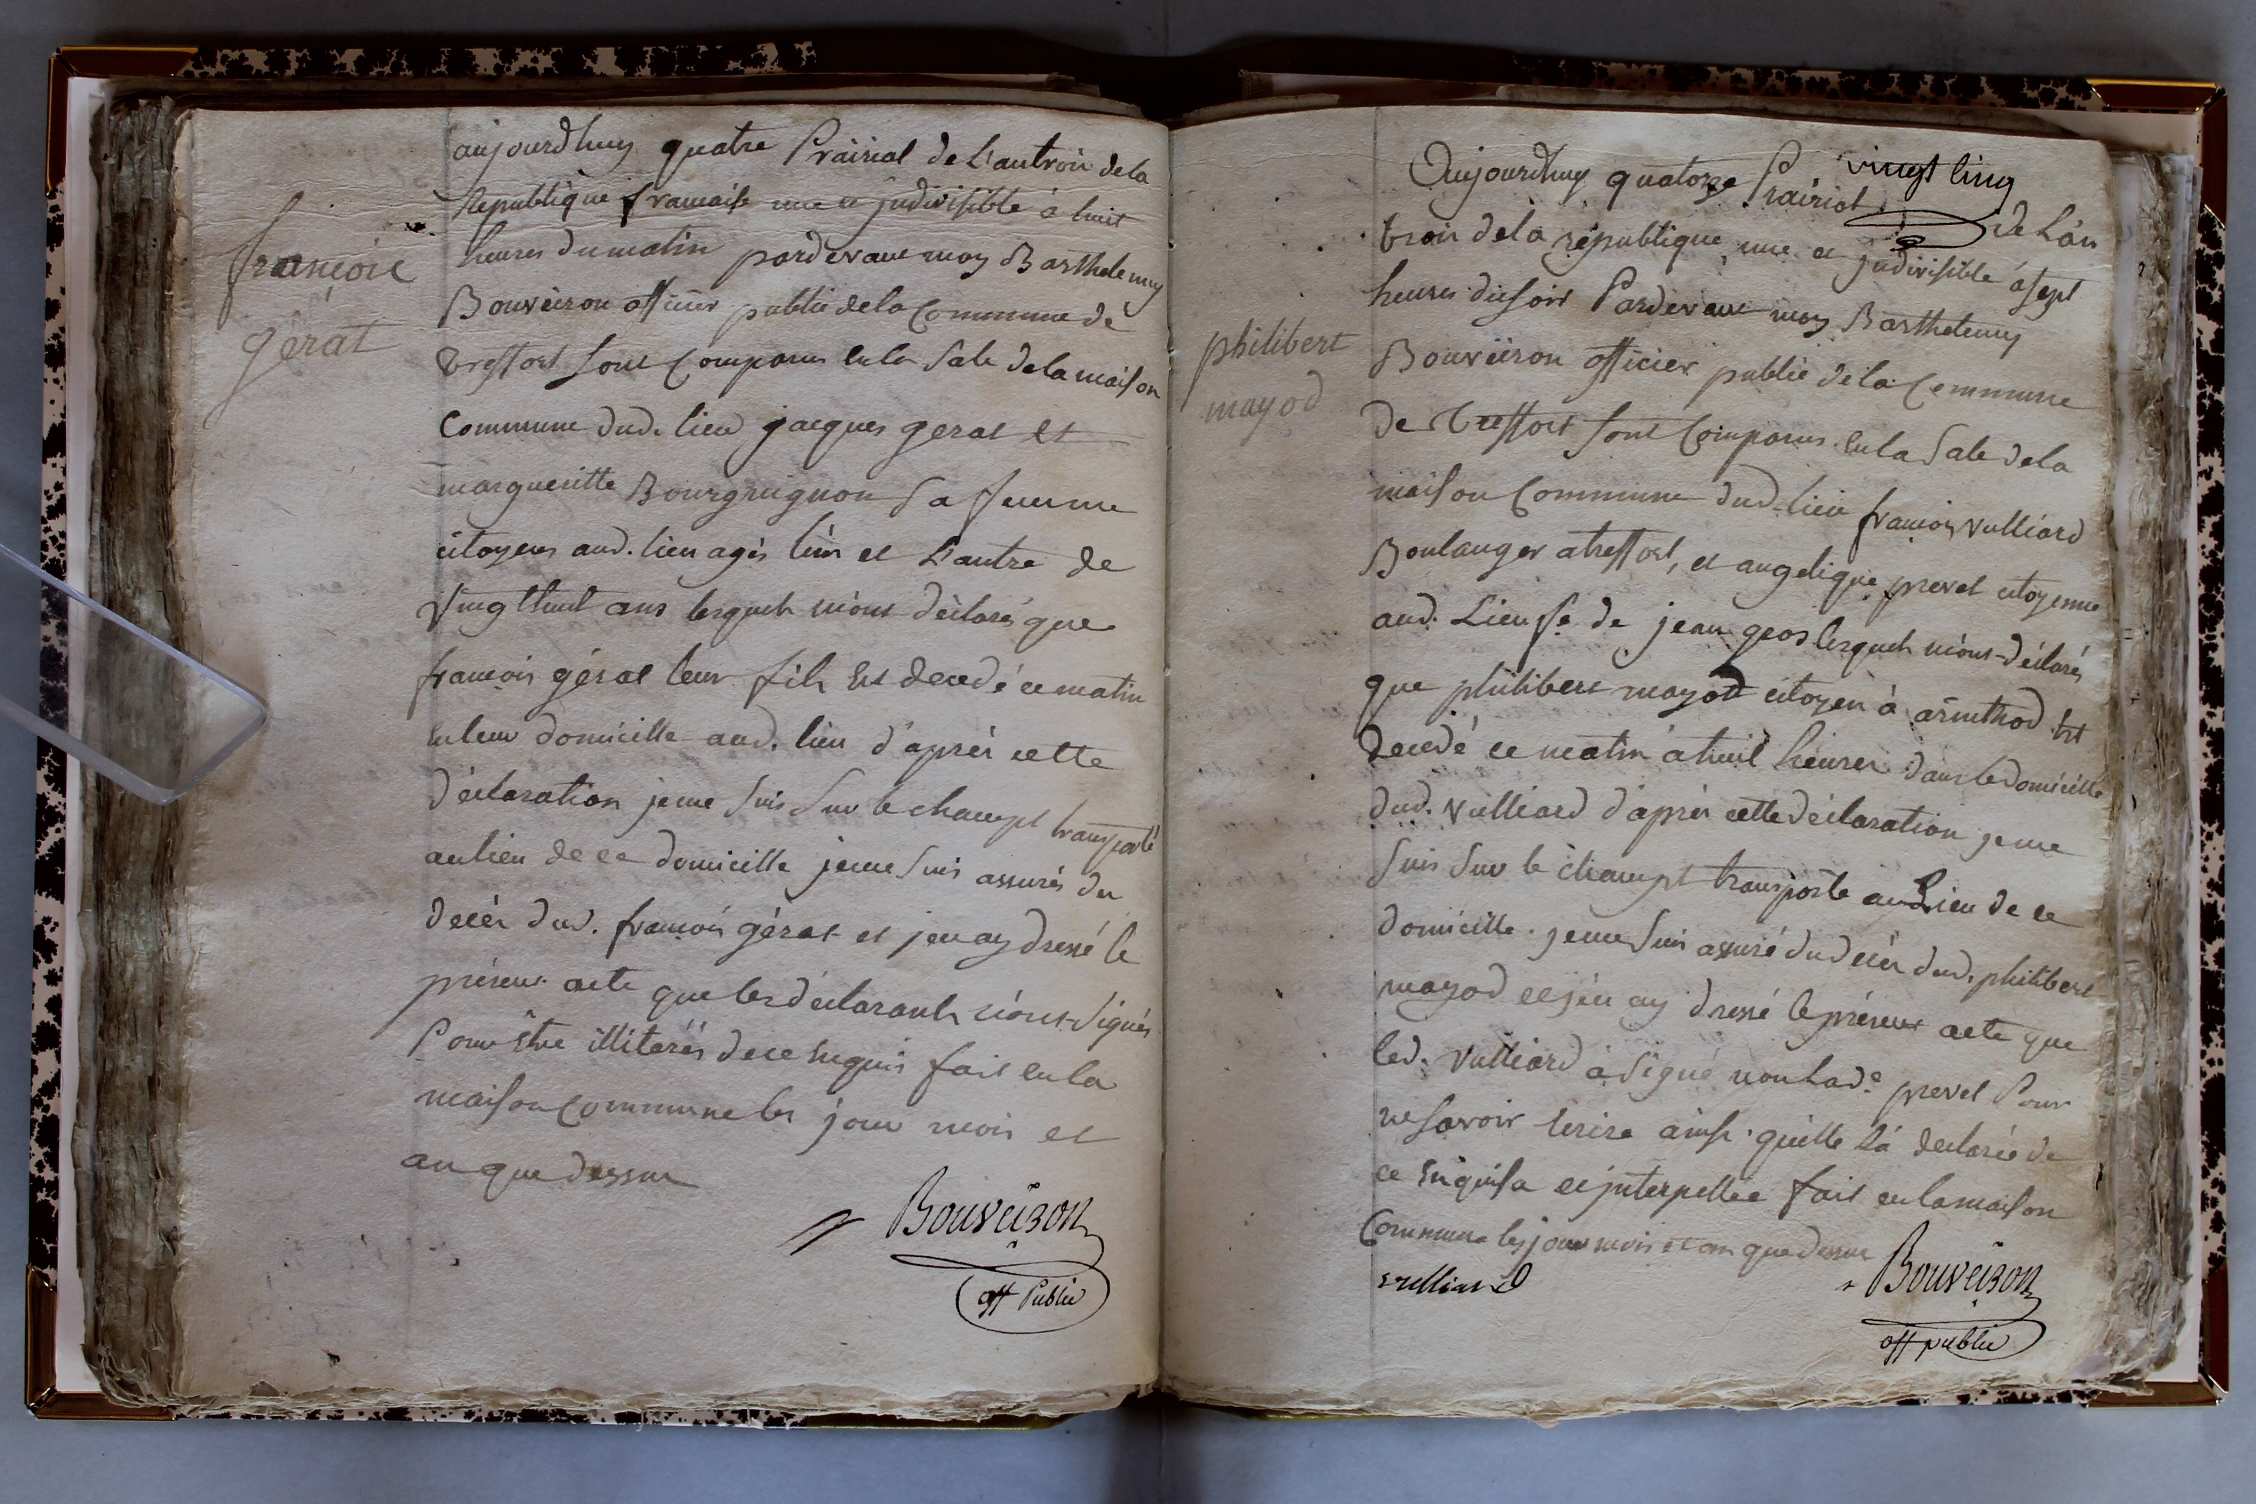 françois
gérat
aujourdhuy quatre Prairial de L'an trois de la
republique francaise une et indivisible à huit
heures du matin pardevant moy Barthelemy
Bouveiron officier public de la Commune de
treffort sont Comparus en la sale de la maison
Commune dud. lieu jacques gerat et
margueritte Bourguignon sa femme
citoyens aud. lieu agés l'un et L'autre de
vingt huit ans lesquels m'ont déclaré que
françois gérat leur fils Est decedé ce matin
en leur domicille aud. lieu d'après cette
déclaration je me suis sur le champt transporté
au lieu de ce domicille je me suis assuré du
decès dud. françois gérat et j'en ay dressé le
présent acte que les déclarants n'ont signés
Pour être illiterés de ce Enquis fait en la
maison commune les jour mois et
an que dessus
Bouveiron
off Public
philibert
mayod
Aujourdhuy quatorze Prairial vingt cinq de L'an
trois de la république une et indivisible à sept
heures du soir Pardevant moy Barthelemy
Bouveiron officier public de la Commune
de treffort sont Comparus en la sale de la
maison Commune dud. lieu françois vulliard
Boulanger a treffort, et angelique prevel citoyenne
aud. Lieu fe. de jean gros lesquels m'ont déclarés
que philibert mayod citoyen à arinthod Est
decedé ce matin à huit heures dans le domicille
dud. vulliard d'après cette déclaration je me
suis sur le champt transporté au Lieu de ce
domicille. je me suis assuré du decès dud. philibert
mayod et j'en ay dressé le présent acte que
led. vulliard à signé non Lade prevel Pour
ne savoir Ecrire ainsi quelle L'à declarée de
ce Enquise et interpellée fait en la maison
Commune les jour mois et an que dessus
vulliard
Bouveiron
off public